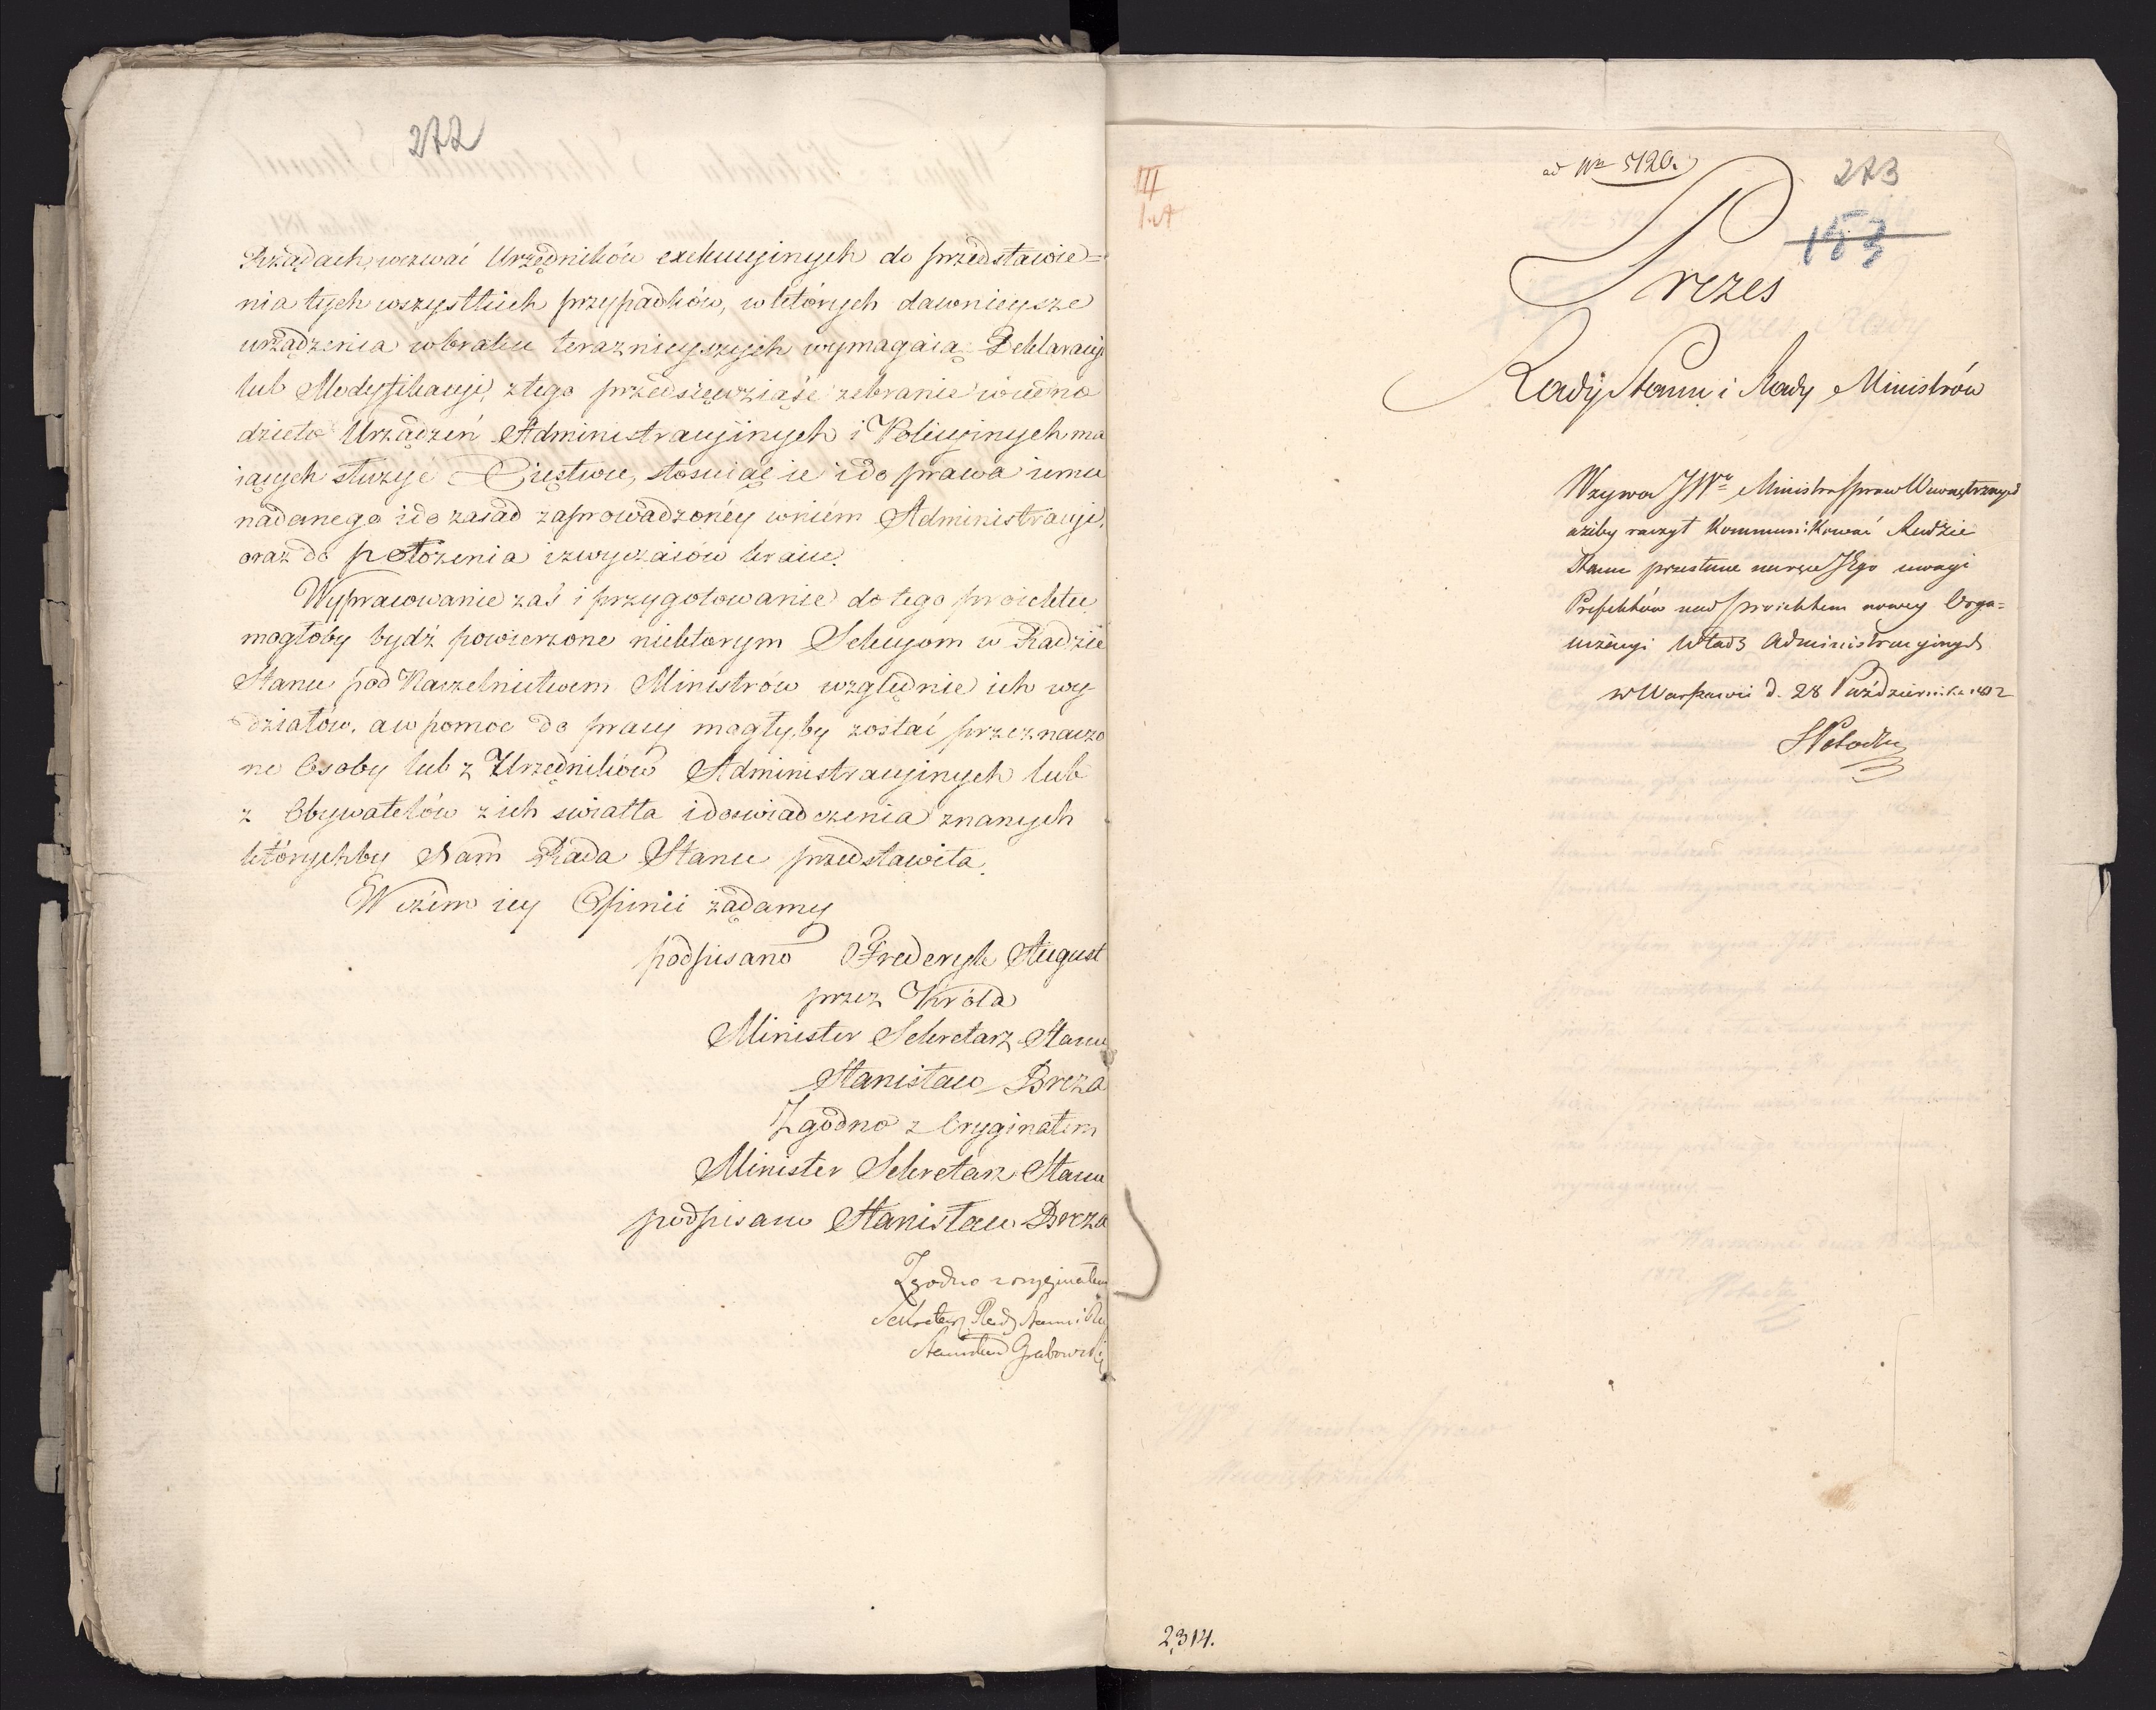 272
Rządach, wezwać Urzędników exekucyinych do przedstawie=
nia tych wszystkich przypadków, w których dawnieysze
urządzenia w braku teraznieyszych wymagaią Deklaracyi
lub Modyfikacyi, z tego przedsięwziąść zebranie w iedno
dzieło Urządzeń Administracyinych i Policyinych ma
iących służyć Xięstwu, stosuiąc ie i do prawa iemu
nadanego i do zasad zaprowadzoney w niem Administracyi,
oraz do położenia i zwyczaiów kraiu.
Wypracowanie zaś i przygotowanie do tego proiektu
mogłoby bydź powierzone niektorym Sekcyom w Radzie
Stanu pod Naczelnictwem Ministrów względnie ich wy-
działów, a w pomoc do pracy mogły by zostać przeznaczo
ne Osoby lub z Urzędników Administracyinych lub
z Obywatelów z ich swiatła i doswiadczenia znanych
którychby Nam Rada Stanu przedstawiła.
W czém iey Opinii żądamy
podpisano Frederyk August
przez Króla
Minister Sekretarz Stanu
Stanisław Breza
Zgodno z Oryginałem
Minister Sekretarz Stanu
podpisano Stanisław Breza
Zgodno z oryginałem
Sekretarz Rady Stanu i
Stanisław Grabowski
III
1.A
ad Nr 5120.
273
153
Prezes
Rady Stanu i Rady Ministrów
Wzywa JWo Ministra Spraw Wewnętrznych
ażeby raczył kommunikować Radzie
Stanu przesłane na ręce JEgo uwagi
Prefektów nad proiektem nowey Orga=
nizacyi Władz Administracyinych
w Warszawie d. 28 Października 1812
S Potocki
2314.